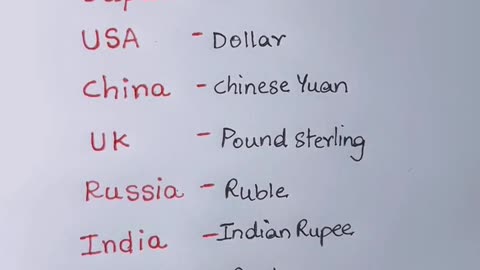 USA - Dollar
China - Chinese Yuan
UK - Pound Sterling
Russia - Ruble
India - Indian Rupee